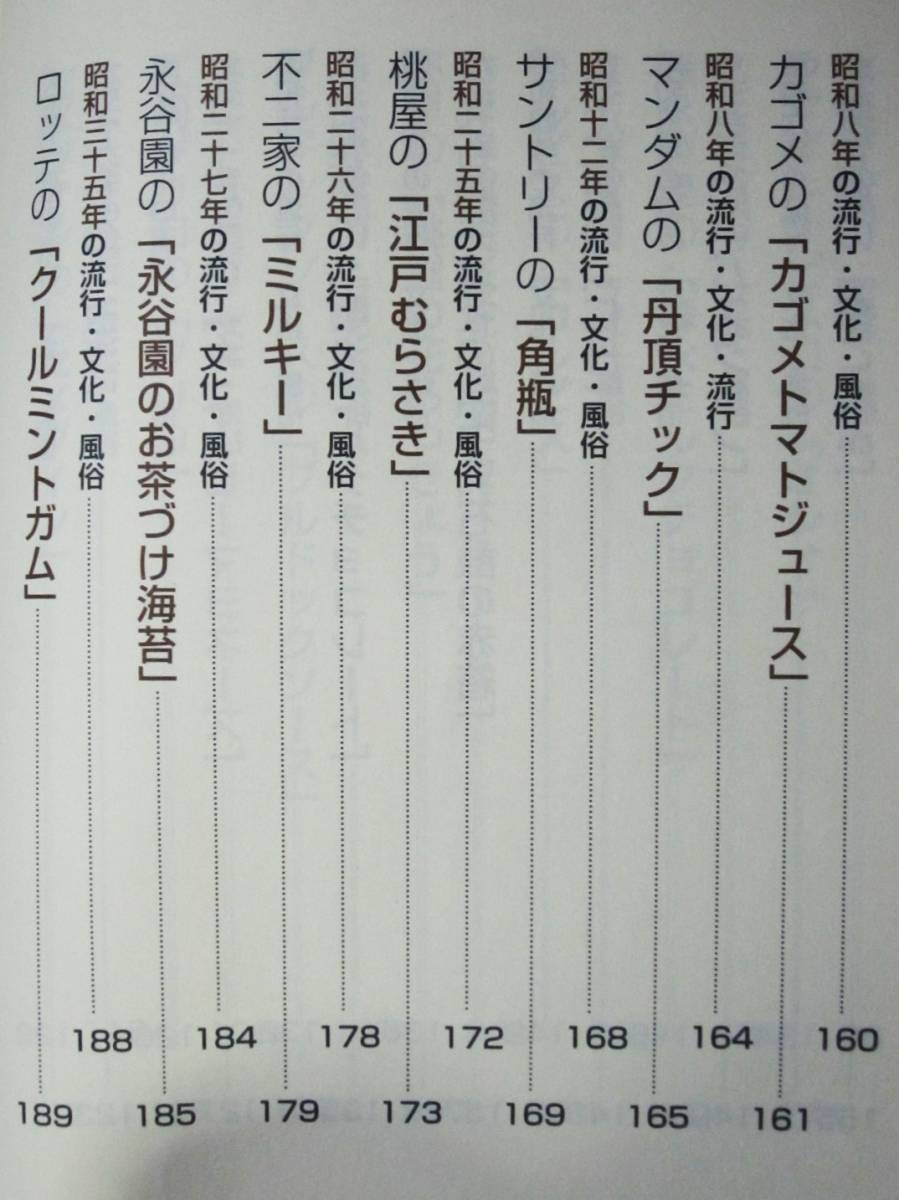 昭和八年の流行・文化・風俗 160
カゴメの「カゴメトマトジュース」 161
昭和八年の流行・文化・流行 164
マンダムの「丹頂チック」 165
昭和十二年の流行・文化・風俗 168
サントリーの「角瓶」 169
昭和二十五年の流行・文化・風俗 172
桃屋の「江戸むらさき」 173
昭和二十六年の流行・文化・風俗 178
不二家の「ミルキー」 179
昭和二十七年の流行・文化・風俗 184
永谷園の「永谷園のお茶づけ海苔」 185
昭和三十五年の流行・文化・風俗 188
ロッテの「クールミントガム」 189